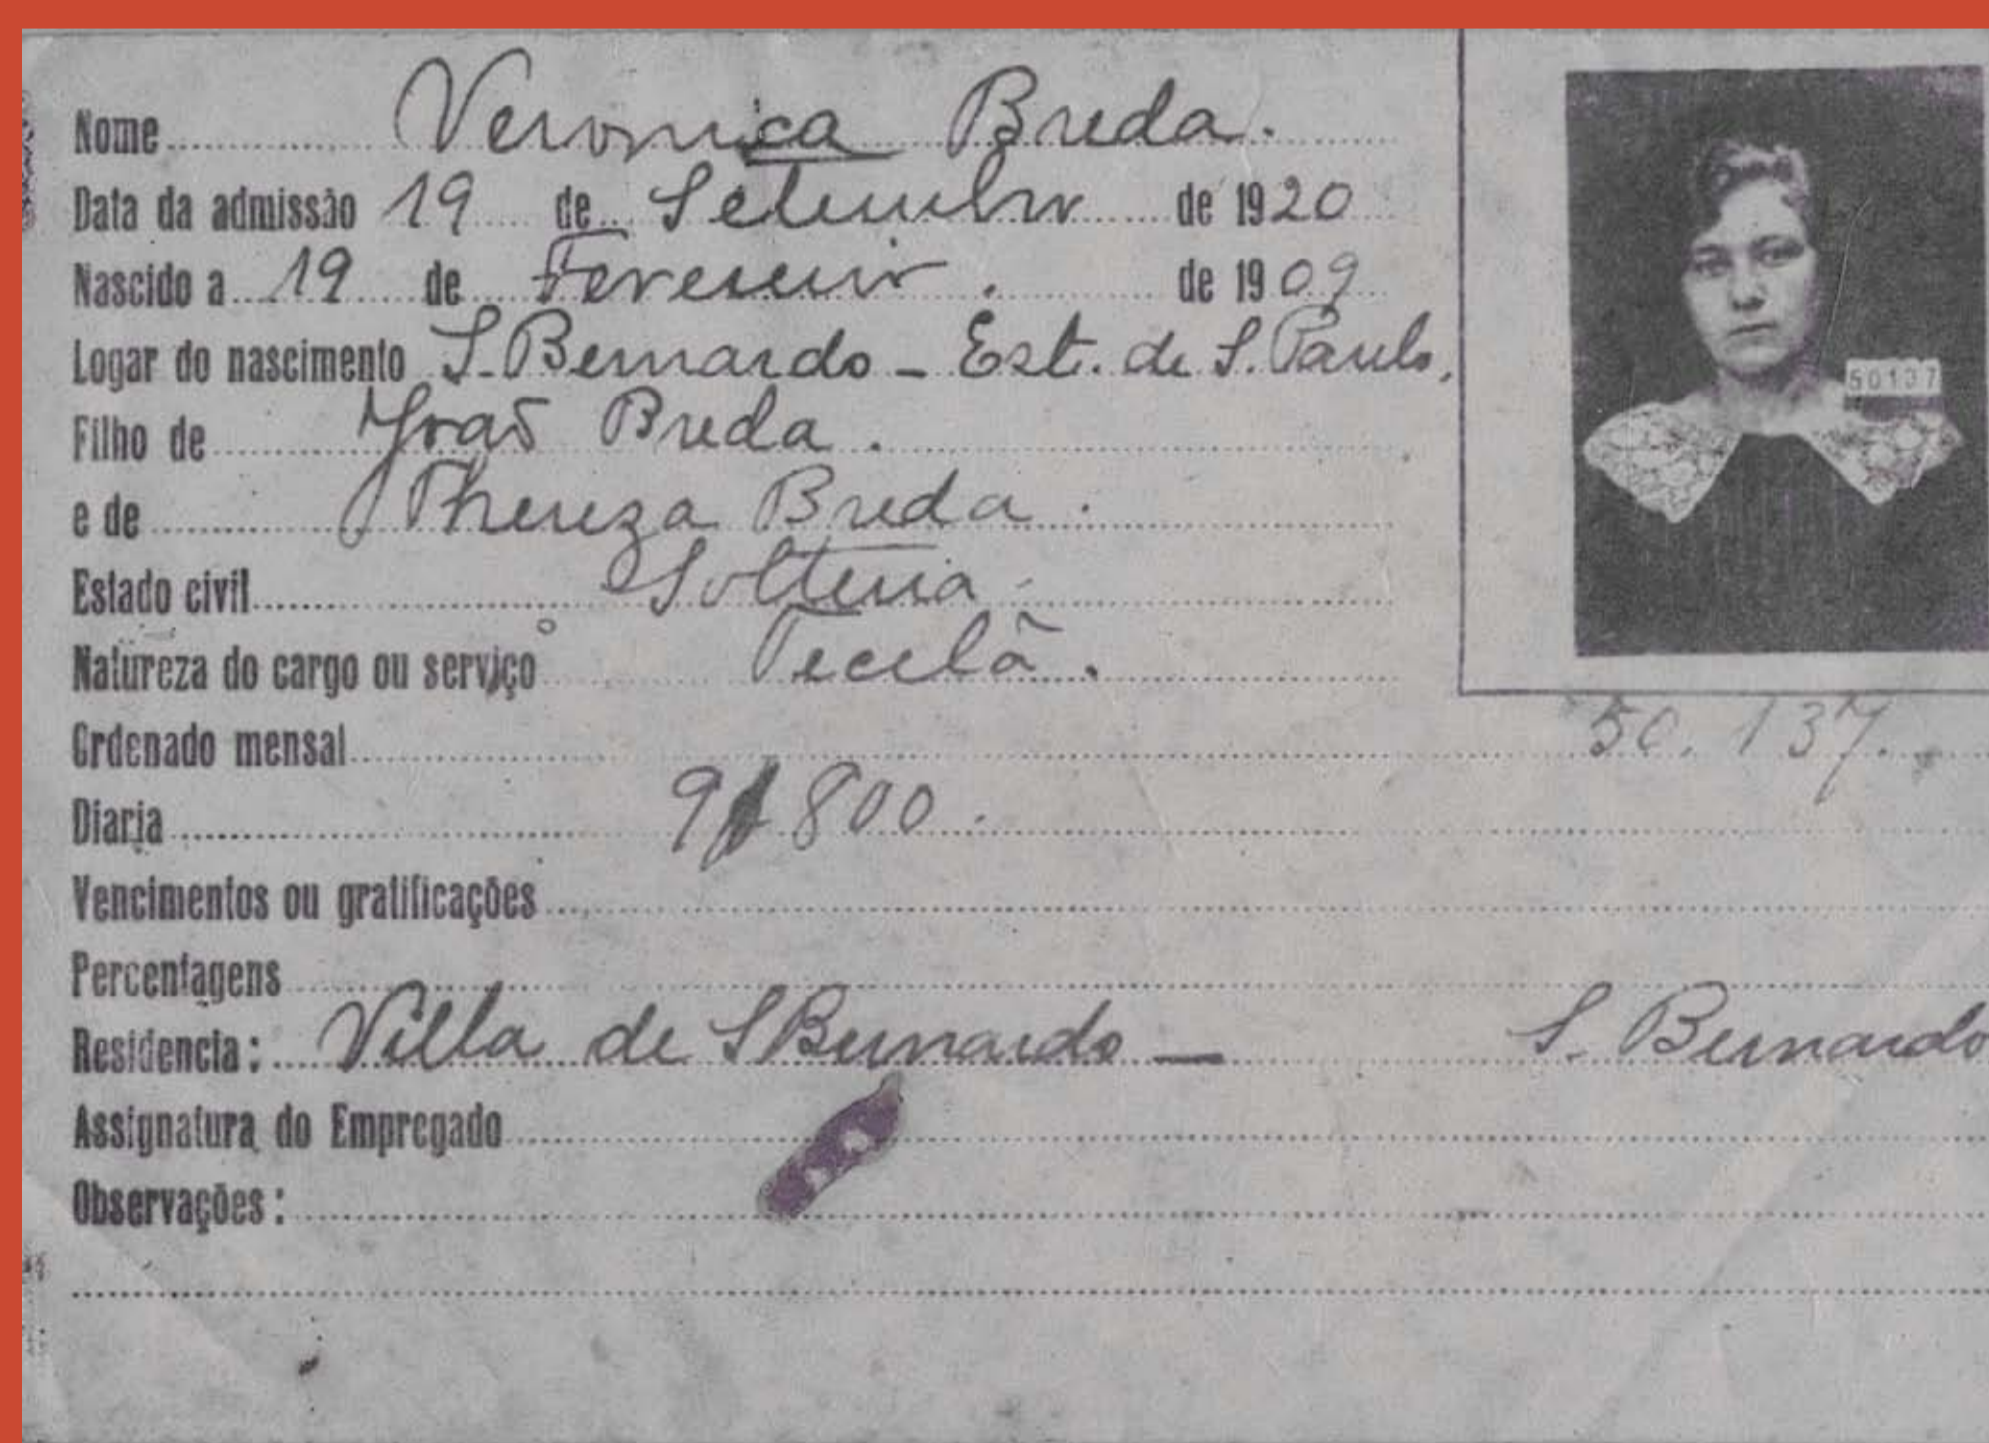 Nome Veronica Breda.
Data da admissão 19 de Setembro de 1920
Nascido a 19 de Fevereiro. de 1909
Logar do nascimento S. Bernardo - Est. de S. Paulo.
Filho de João Breda.
e de Thereza Breda.
Estado civil Solteira
Natureza do cargo ou serviço Tecelã.
50137
Ordenado mensal 50.137.
Diaria 9$800.
Vencimentos ou gratificações
Percentagens
Residencia: Villa de S Bernardo — S. Bernardo
Assignatura do Empregado
Observações: